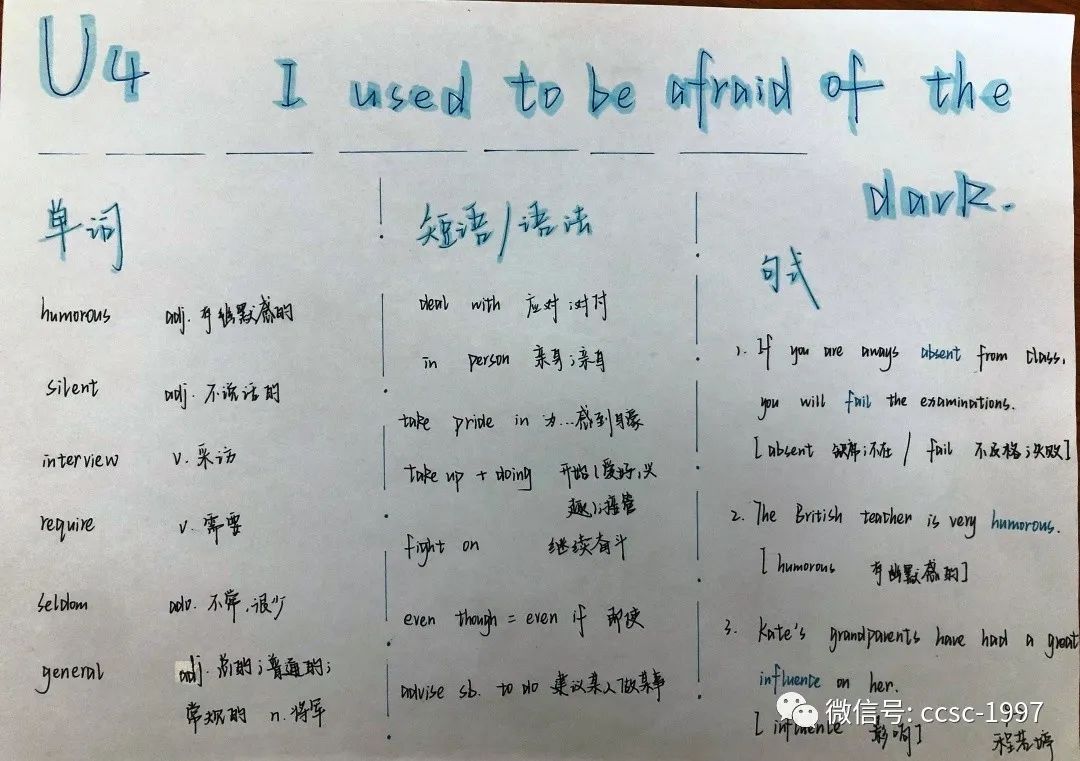 U4 I used to be afraid of the
dark.
单词
humorous adj. 有幽默感的
silent adj. 不说话的
interview v. 采访
require v. 需要
seldom adv. 不常,很少
general adj. 总的;普通的;
常规的 n. 将军
短语/语法
deal with 应对;对付
in person 亲身;亲自
take pride in 为...感到自豪
take up + doing 开始(爱好,兴
趣);接管
fight on 继续奋斗
even though = even if 即使
advise sb. to do 建议某人做某事
句式
1. If you are aways absent from class,
you will fail the examinations.
[absent 缺席;不在 / fail 不及格;失败]
2. The British teacher is very humorous.
[humorous 有幽默感的]
3. Kate's grandparents have had a great
influence on her.
[influence 影响]
程若婷
微信号: ccsc-1997